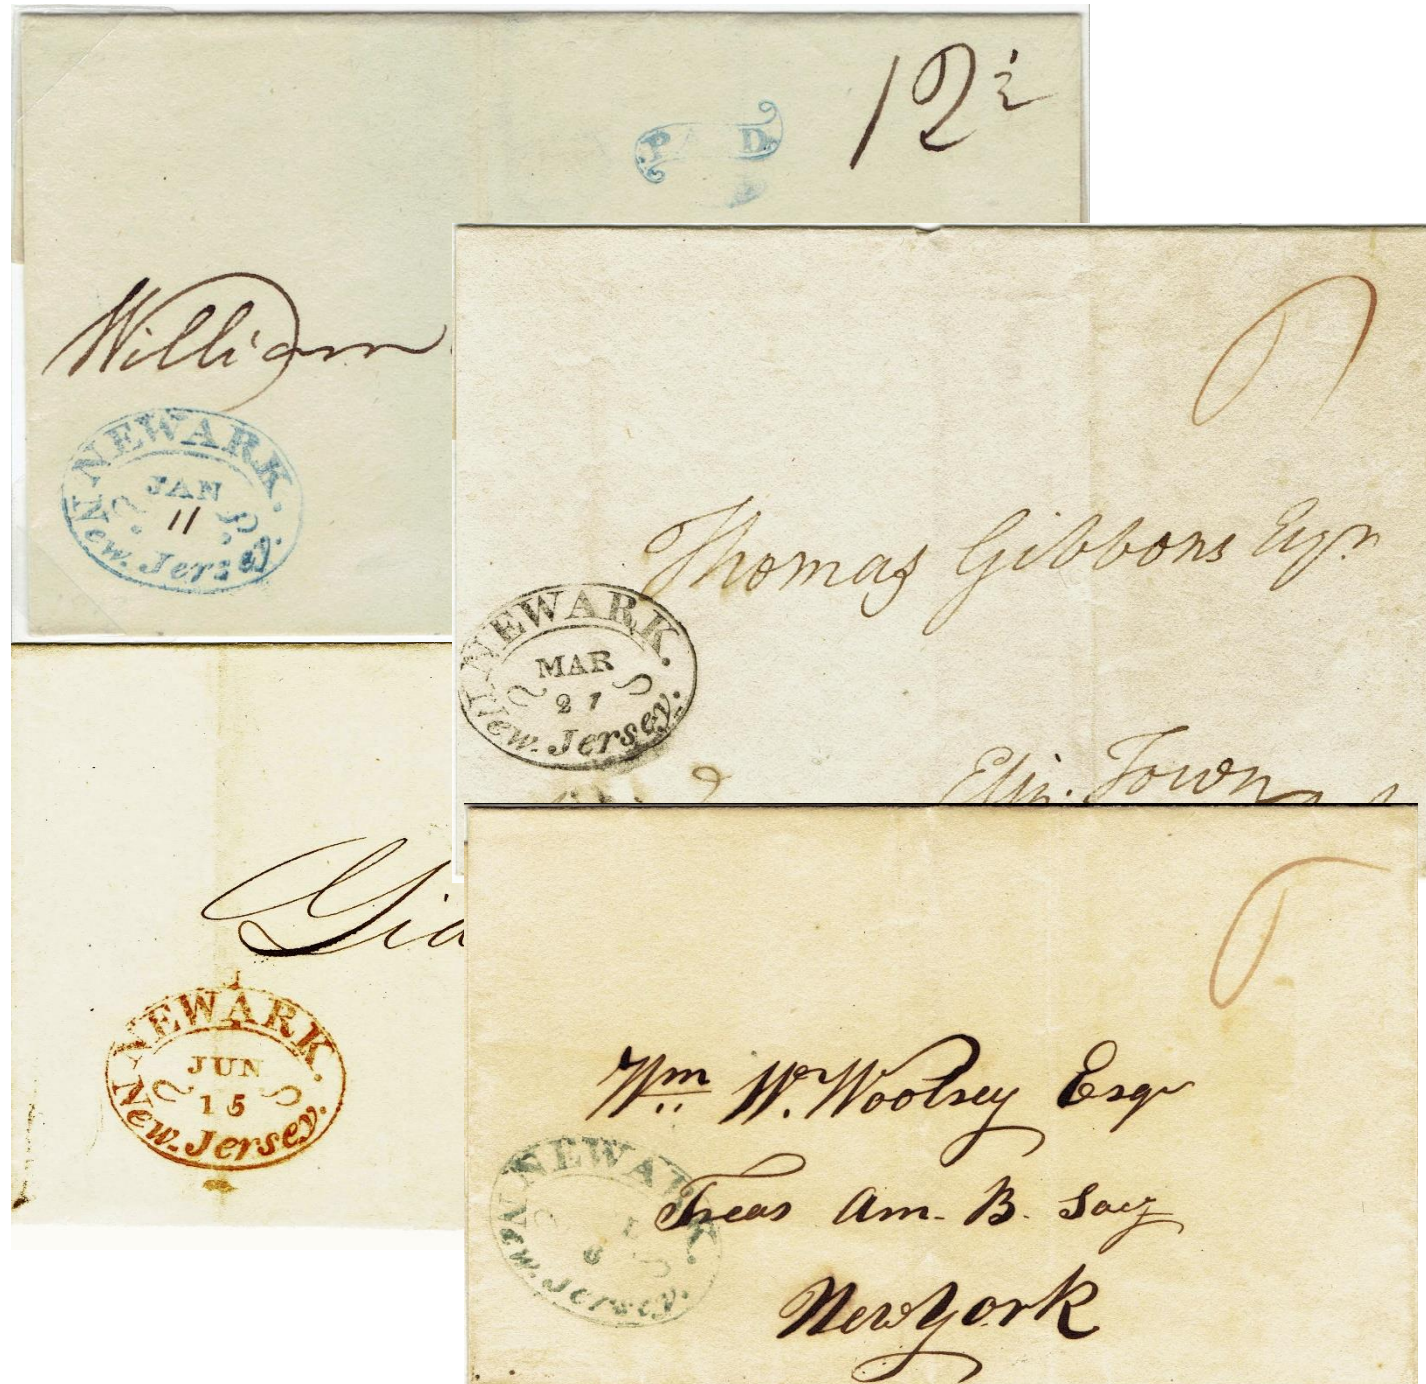 12½
PAID.
William
NEWARK.
JAN
11
New. Jersey.
Thomas Gibbons Esqr
NEWARK.
MAR
27
New. Jersey.
Eliz. Town
Gid
NEWARK.
JUN
15
New. Jersey.
Wm W. Woolsey Esqr
Treas Am. B. Socy
New York
NEWARK.
6
New. Jersey.